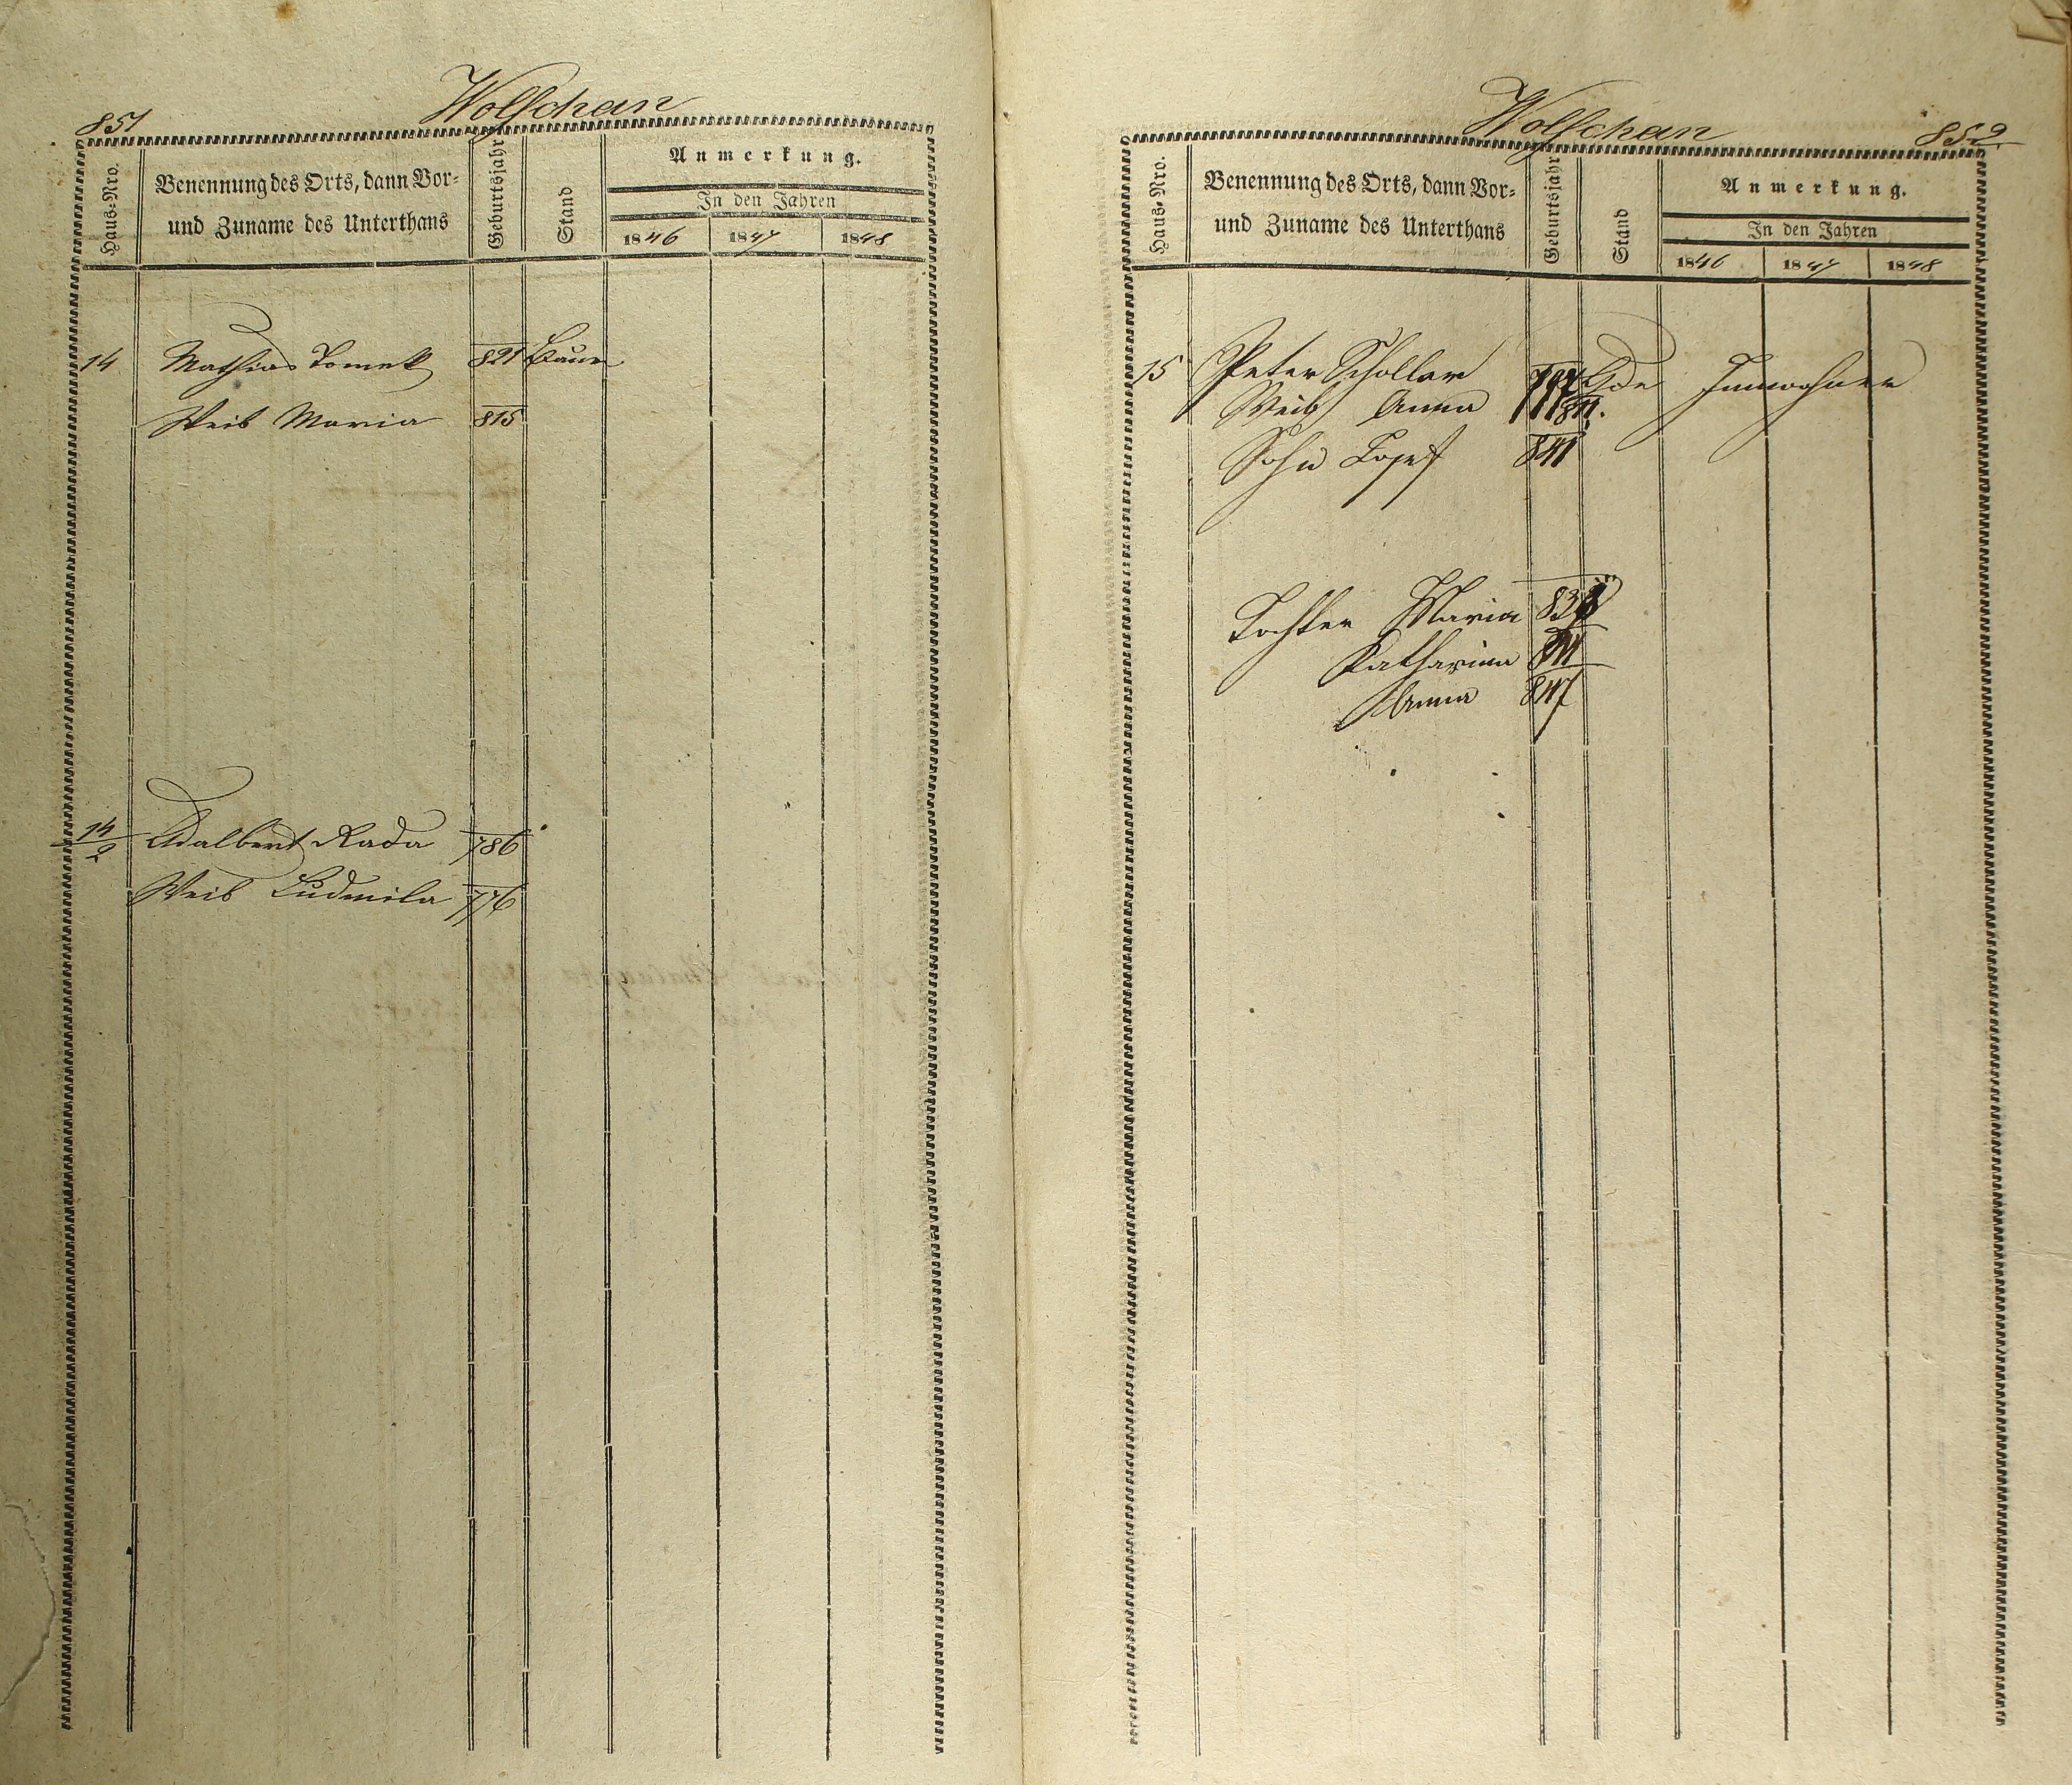 851
Wolschan
Haus-Nro.
Benennung des Orts, dann Vor-
und Zuname des Unterthans
Geburtsjahr
Stand
Anmerkung.
In den Jahren
1846 1847 1848
14 Mathias Tomek 821 Bauer
Weib Maria 815
14/2 Adalbert Rada 786
Weib Ludmila 776
Wolschan
852
Haus-Nro.
Benennung des Orts, dann Vor-
und Zuname des Unterthans
Geburtsjahr
Stand
Anmerkung.
In den Jahren
1846 1847 1848
15 Peter Schollar Inwohner
Weib Anna 811.
Sohn Josef 841
Tochter Maria
Katharina
Anna 847